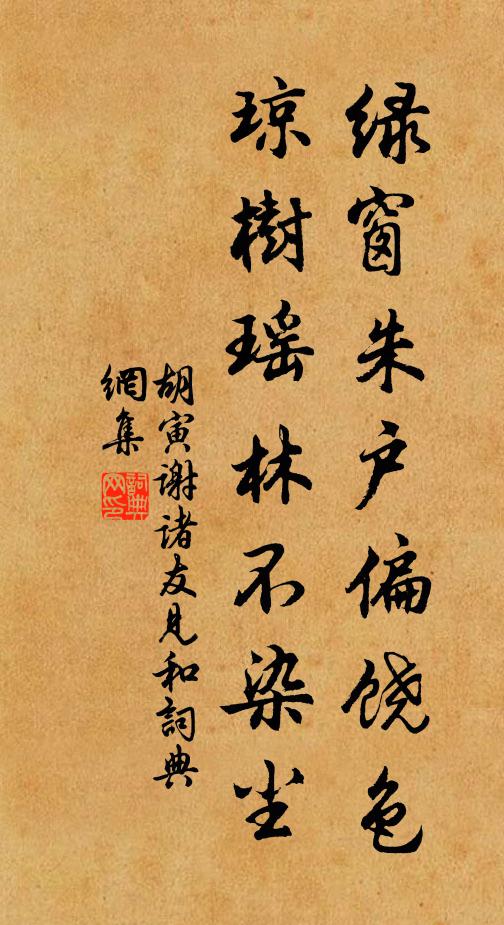 绿窗朱户偏饶色
琼樹瑶林不染尘
胡寅谢诸友见和詞典
網集
詞典
网印